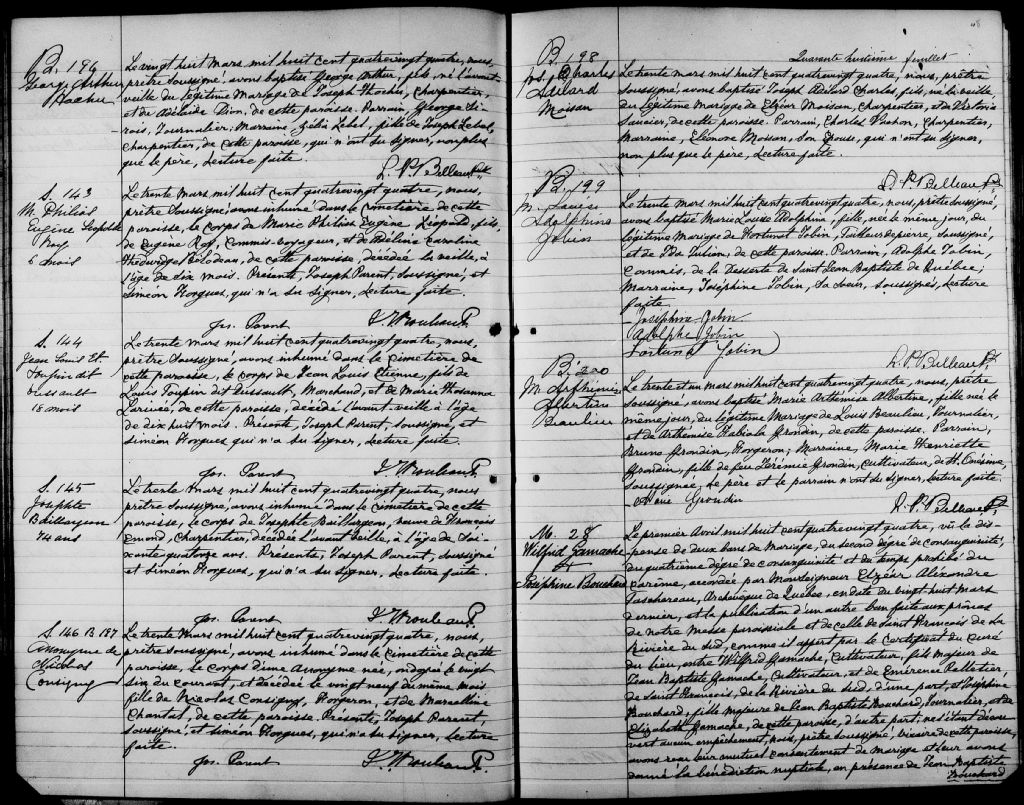 B. 196
George Arthur
Le vingt huit Mars mil huit cent quatrevingt quatre, nous,
prêtre soussigné, avons baptisé George Arthur, fils, né l'avant
veille du légitime Mariage de Joseph charpentier,
et de Adélaïde Dion, de cette paroisse. Parrain, George Si-
rois, Journalier; Marraine, Zélia Lebel, fille de Joseph Lebel,
charpentier, de cette paroisse, qui n'ont su signer, non plus
que le père, Lecture faite.
S. 143
M. Philias
Eugène Léopold
Roy
6 mois
Le trente Mars mil huit cent quatrevingt quatre, nous,
prêtre soussigné, avons inhumé dans le cimetière de cette
paroisse, le corps de Marie Philias Eugène Léopold, fils,
de Eugène Roy, Commis-voyageur, et de Adeline Caroline
Hedwidge Bilodeau, de cette paroisse, décédée la veille, à
l'âge de six mois. Présents, Joseph Parent, soussigné, et
Siméon Horgues, qui n'a su signer, Lecture faite.
Jos. Parent
S. 144
Jean Louis Et.
Toupin dit
Dussault
18 mois
Le trente Mars mil huit cent quatrevingt quatre, nous,
prêtre soussigné, avons inhumé dans le cimetière de
cette paroisse, le corps de Jean Louis Etienne, fils de
Louis Toupin dit Dussault, Marchand, et de Marie Hosanna
Larivée, de cette paroisse, décédé l'avant-veille à l'âge
de dix huit mois. Présents, Joseph Parent, soussigné, et
Siméon Horgues qui n'a su signer, Lecture faite.
Jos. Parent
S. 145
Josephte
Baillargeon
74 ans
Le trente Mars mil huit cent quatrevingt quatre, nous
prêtre soussigné, avons inhumé dans le cimetière de cette
paroisse, le corps de Josephte Baillargeon, veuve de François
Emond, Charpentier, décédée l'avant veille, à l'âge de Soi-
xante quatorze ans. Présents, Joseph Parent, soussigné
et Siméon Horgues, qui n'a su signer, Lecture faite.
Jos. Parent
S. 146 B 197
Anonyme de
Nicolas
Consigny
Le trente Mars mil huit cent quatrevingt quatre, nous,
prêtre soussigné, avons inhumé dans le cimetière de cette
paroisse, le corps d'une Anonyme née, ondoyée le vingt
six du courant, et décédée le vingt neuf du même mois
fille de Nicolas Consigny, Forgeron, et de Marcelline
Chantal, de cette paroisse. Présents, Joseph Parent,
soussigné, et Siméon Horgues, qui n'a su signer, Lecture
faite.
Jos. Parent
48
Quarante huitième feuillet
B. 198
Jos. Charles
Adélard
Moisan
Le trente Mars mil huit cent quatrevingt quatre, nous, prêtre
soussigné, avons baptisé Joseph Adélard Charles, fils, né la veille,
du légitime Mariage de Elzéar Moisan, Charpentier, et de Victoria
Saucier, de cette paroisse. Parrain, Charles Vachon, Charpentier,
Marraine, Eléonore Moisan, son Epouse, qui n'ont su signer,
non plus que le père, Lecture faite.
B. 199
M. Louise
Adolphina
Jobin
Le trente Mars mil huit cent quatrevingt quatre, nous, prêtre soussigné,
avons baptisé Marie Louise Adolphina, fille, née le même jour, du
légitime Mariage de Fortunat Jobin, Tailleur de pierre, soussigné,
et de Ida Julien, de cette paroisse. Parrain, Adolphe Jobin,
Commis, de la Desserte de Saint Jean Baptiste de Québec;
Marraine, Joséphine Jobin, sa soeur, soussignés, Lecture
faite
Josephine Jobin
Adolphe Jobin
Fortunat Jobin
B. 200
M. Arthémise
Albertine
Beaulieu
Le trente et un Mars mil huit cent quatrevingt quatre, nous, prêtre
soussigné, avons baptisé Marie Arthémise Albertine, fille née le
même jour, du légitime Mariage de Louis Beaulieu, Journalier,
et de Arthémise Fabiola Grondin, de cette paroisse. Parrain,
Bruno Grondin, Forgeron; Marraine, Marie Henriette
Grondin, fille de feu Jérémie Grondin, cultivateur, de St. Onésime,
Soussignée, le père et le parrain n'ont su signer, Lecture faite.
Grondin
M. 28
Wilfrid Gamache
&
Joséphine Bouchard
Le premier Avril mil huit cent quatrevingt quatre, vu la dis-
pense de deux bans de Mariage, du second degré de consanguinité,
du quatrième degré de consanguinité et du temps prohibé du
Carême, accordée par Monseigneur Elzéar Alexandre
Taschereau, Archevêque de Québec, en date du vingt huit Mars
dernier, et la publication d'un autre ban faite aux prônes
de notre Messe paroissiale et de celle de Saint François de la
Rivière du Sud, comme il appert par le certificat du curé
du lieu, entre Wilfrid Gamache, Cultivateur, fils majeur de
Jean Baptiste Gamache, Cultivateur, et de Emérence Pelletier
de Saint François, de la Rivière du Sud, d'une part, et Joséphine
Bouchard, fille majeure de Jean Baptiste Bouchard, Journalier, et de
Elizabeth Gamache, de cette paroisse, d'autre part; ne s'étant décou-
vert aucun empêchement, nous, prêtre soussigné, vicaire de cette paroisse,
avons reçu leur mutuel consentement de mariage et leur avons
donné la bénédiction nuptiale, en présence de Jean Baptiste
Bouchard